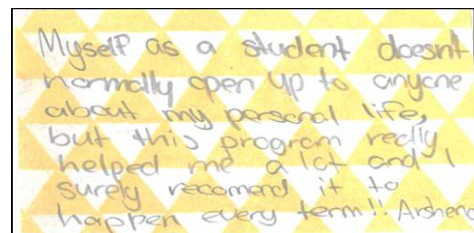 Myself as a student doesnt
normally open up to anyone
about my personal life,
but this program really
helped me a lot and I
surely recomend it to
happen every term!! Arshena